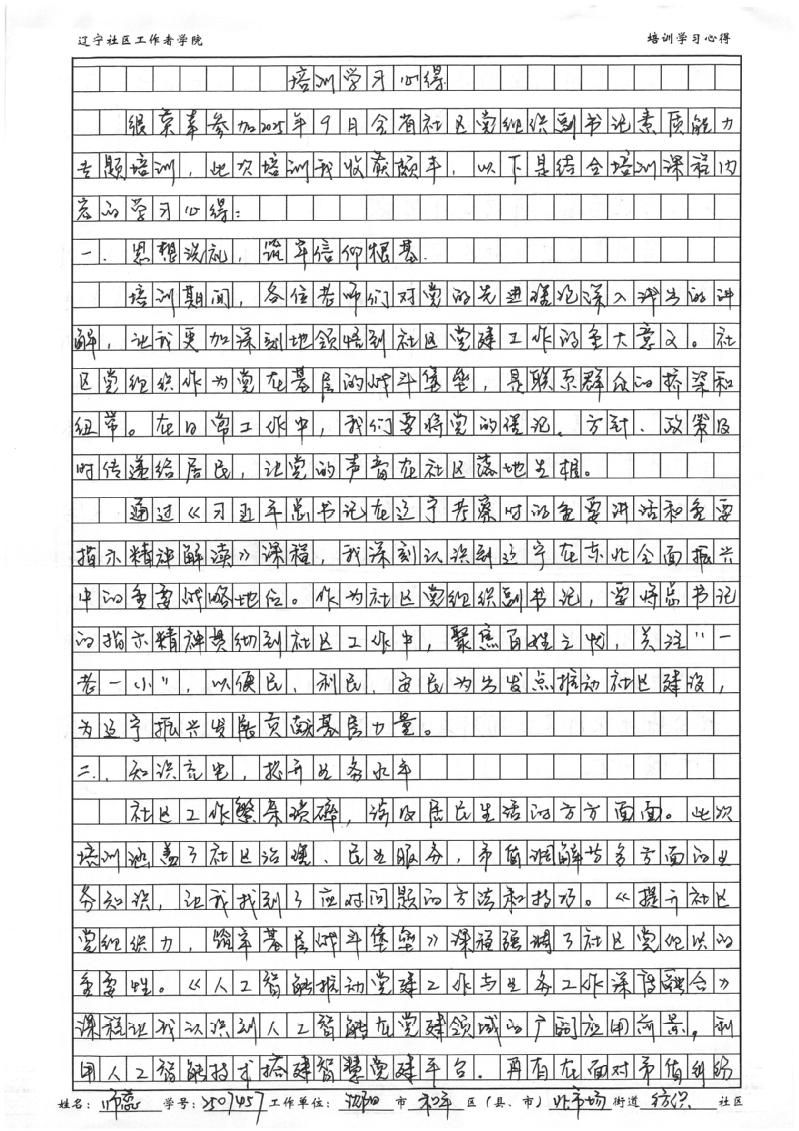 辽宁社区工作者学院 培训学习心得
培训学习心得
很荣幸参加2025年9月全省社区党组织副书记素质能力
专题培训，此次培训我收获颇丰，以下是结合培训课程内
容的学习心得：
一、思想洗礼，筑牢信仰根基
培训期间，各位老师们对党的先进理论深入浅出的讲
解，让我更加深刻地领悟到社区党建工作的重大意义。社
区党组织作为党在基层的战斗堡垒，是联系群众的桥梁和
纽带。在日常工作中，我们要将党的理论、方针、政策及
时传递给居民，让党的声音在社区落地生根。
通过《习近平总书记在辽宁考察时的重要讲话和重要
指示精神解读》课程，我深刻认识到辽宁在东北全面振兴
中的重要战略地位。作为社区党组织副书记，要将总书记
的指示精神贯彻到社区工作中，聚焦百姓之忧，关注“一
老一小”，以便民、利民、安民为出发点推动社区建设，
为辽宁振兴发展贡献基层力量。
二、知识充电，提升业务水平
社区工作繁杂琐碎，涉及居民生活的方方面面。此次
培训涵盖了社区治理、民生服务，矛盾调解等多方面的业
务知识，让我找到了应对问题的方法和技巧。《提升社区
党组织力，筑牢基层战斗堡垒》课程强调了社区党组织的
重要性。《人工智能推动党建工作与业务工作深度融合》
课程让我认识到人工智能在党建领域的广阔应用前景。利
用人工智能技术搭建智慧党建平台。再有在面对矛盾纠纷
姓名：师蕊 学号：2507457 工作单位：沈阳 市 和平 区（县、市） 北市场 街道 纺织 社区